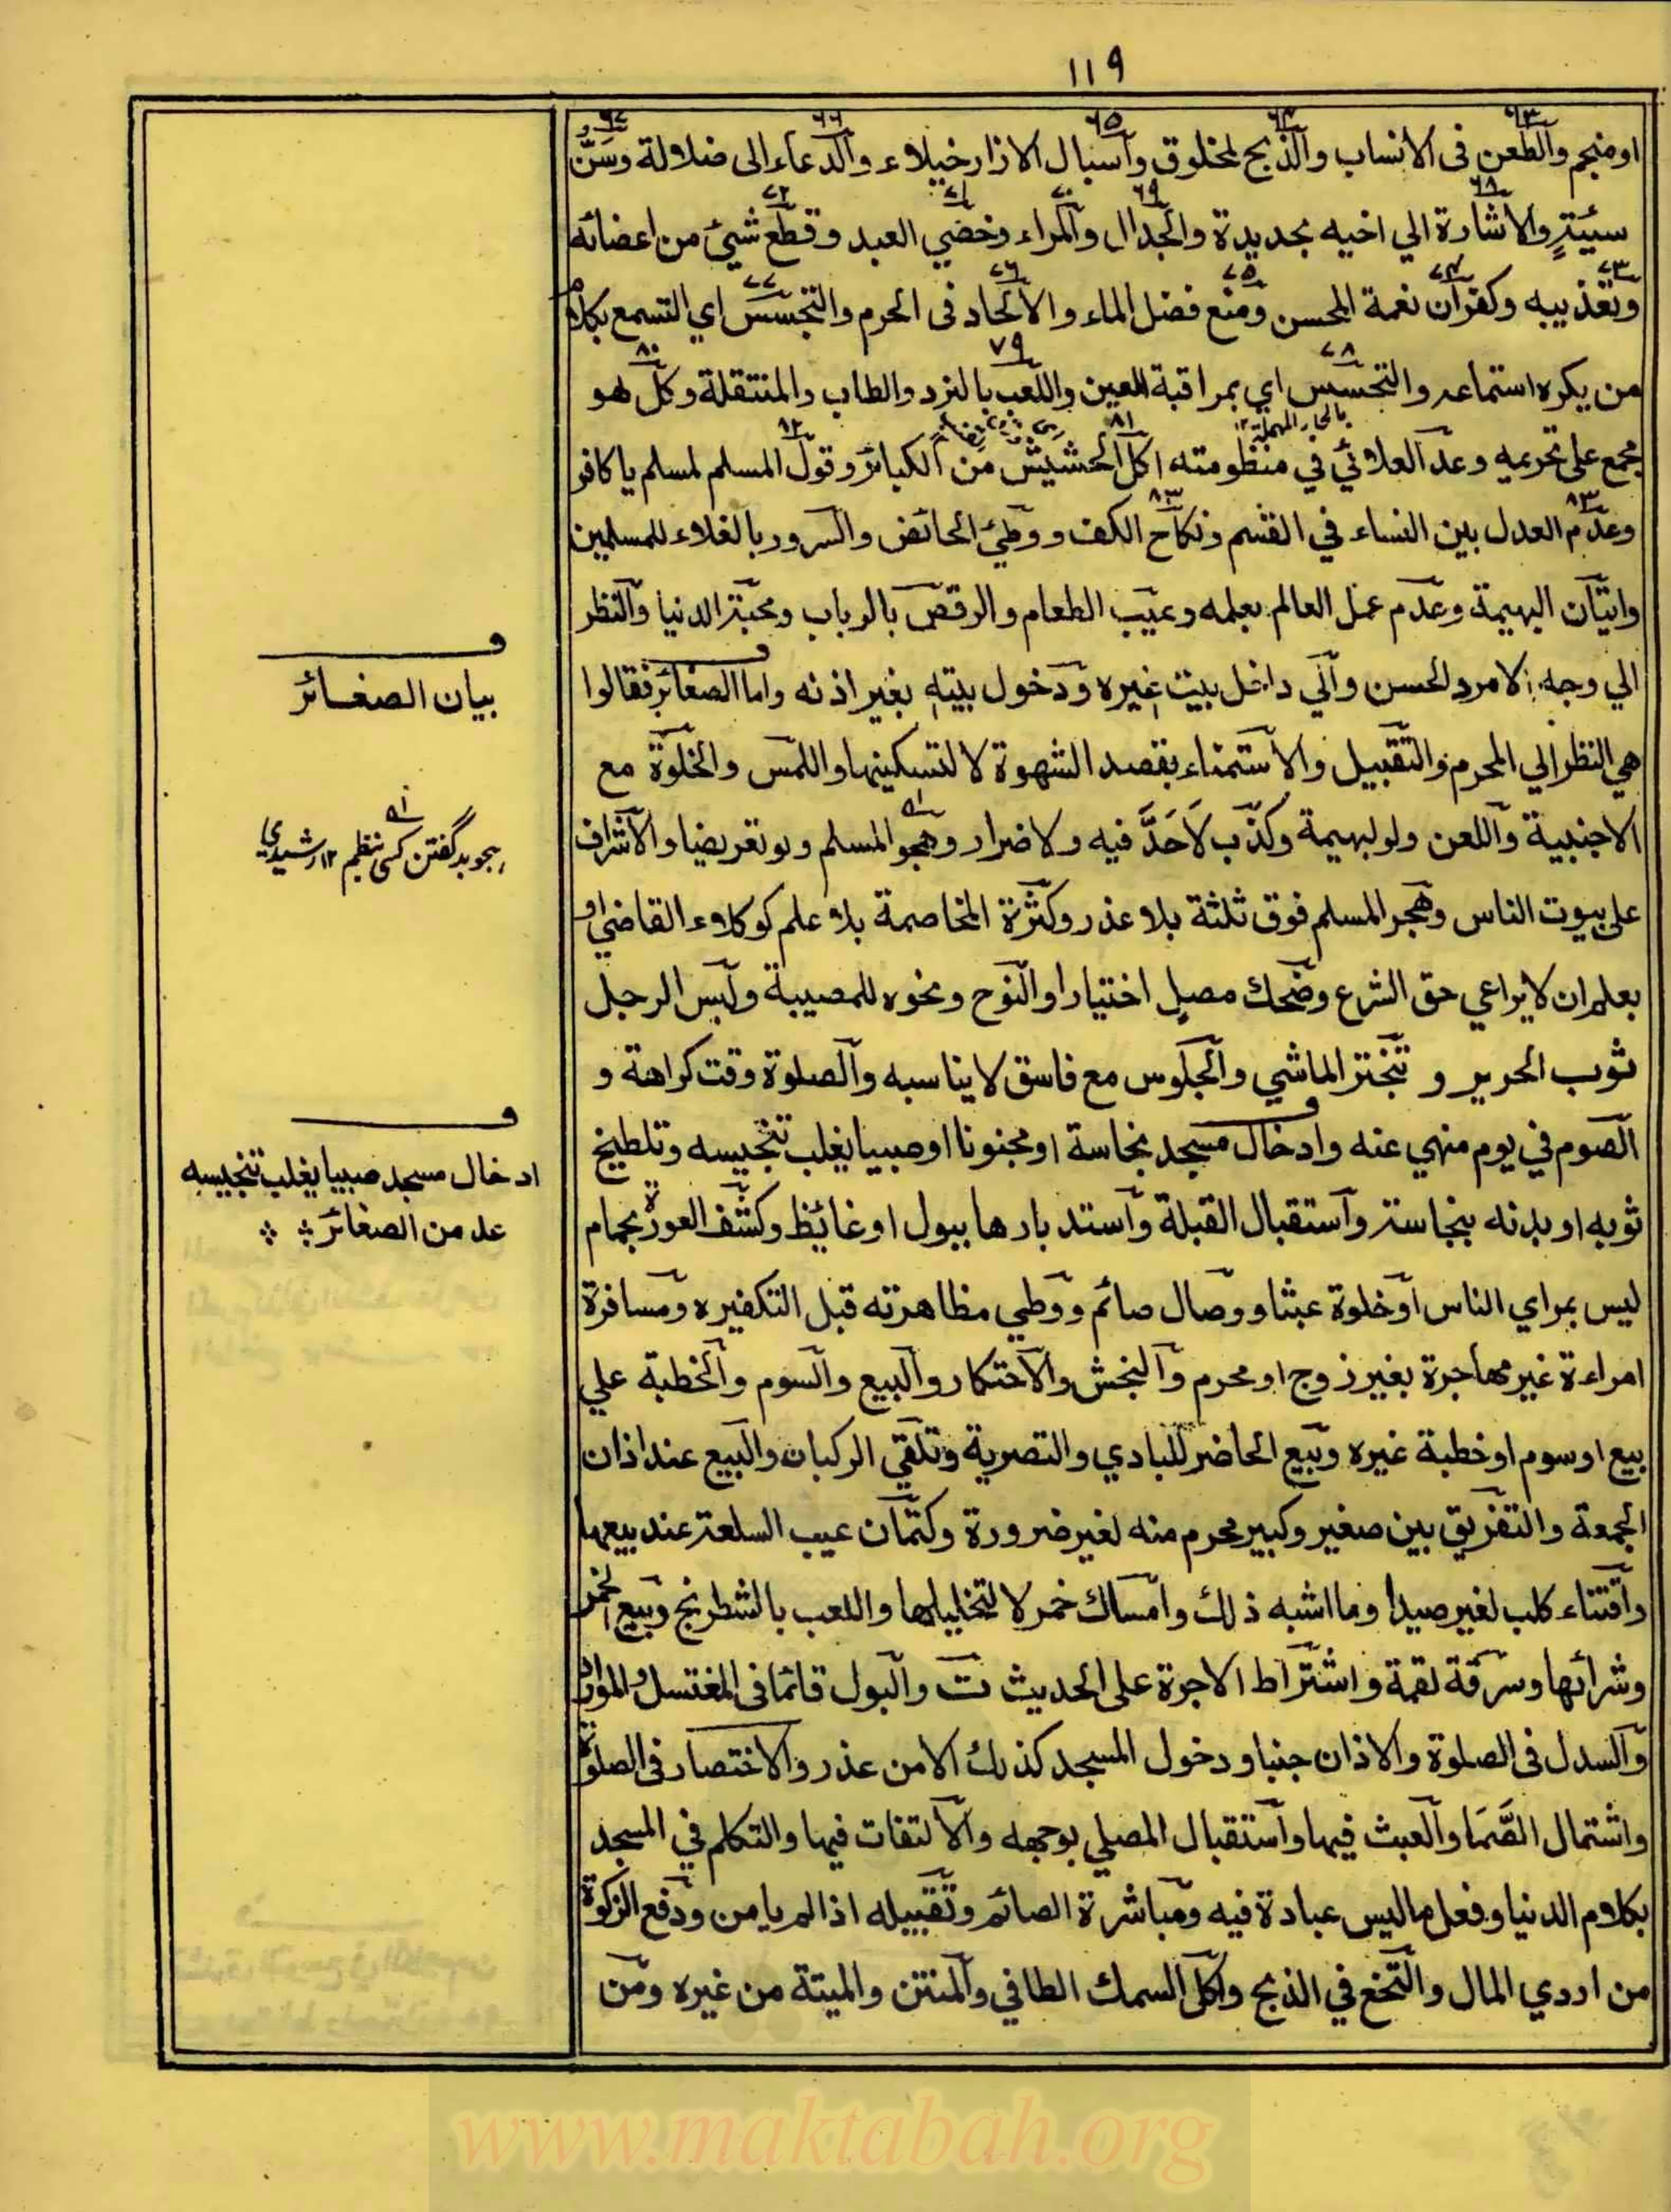 ١١٩
او منجم والطعن فى الانساب والذبح لمخلوق واسبال الازار خيلاء والدعاء الى ضلالة وسَنّ
سيئةٍ والاشارة الي اخيه بحديدة والجدال والمراء وخصي العبد وقطع شيئ من اعضائه
وتعذيبه وكفران نعمة المحسن ومنع فضل الماء والالحاد فى الحرم والتجسس اي التسمع بكلام
من يكره استماعه والتحسس اي بمراقبة العين واللعب بالنرد والطاب والمنتقلة وكل لهو
بالحاء المهملة ١٢
مجمع على تحريمه وعد العلائي في منظومته اكل الحشيش من الكبائر وقول المسلم لمسلم يا كافر
وعدم العدل بين النساء في القسم ونكاح الكف ووطيئ الحائض والسرور بالغلاء للمسلمين
واتيان البهيمة وعدم عمل العالم بعلمه وعيب الطعام والرقص بالرباب ومحبة الدنيا والنظر
الي وجه الامرد الحسن والي داخل بيت غيره ودخول بيته بغير اذنه واما الصغائر فقالوا
هي النظر الي المحرم والتقبيل والاستمناء بقصد الشهوة لا لتسكينها واللمس والخلوة مع
الاجنبية واللعن ولو لبهيمة وكذب لاَحَدَّ فيه ولا ضرار وهجو المسلم ولو تعريضا والاشراف
على بيوت الناس وهجر المسلم فوق ثلثة بلا عذر وكثرة المخاصمة بلا علم كوكلاء القاضي او
بعلم ان لا يراعي حق الشرع وضحك مصلٍ اختيارا والنوح ونحوه للمصيبة ولبس الرجل
ثوب الحرير و تبختر الماشي والجلوس مع فاسق لا يناسبه والصلوة وقت كراهة و
الصوم في يوم منهي عنه وادخال مسجد نجاسة او مجنونا او صبيا يغلب تنجيسه وتلطيخ
ثوبه او بدنه بنجاسة واستقبال القبلة واستدبارها ببول او غائط وكشف العورة بحمام
ليس بمراي الناس او خلوة عبثا ووصال صائم ووطي مظاهرته قبل التكفيره ومسافرة
امراءة غير مهاجرة بغير زوج او محرم والنجش والاحتكار والبيع والسوم والخطبة علي
بيع او سوم او خطبة غيره وبيع الحاضر للبادي والتصرية وتلقي الركبان والبيع عند اذان
الجمعة والتفريق بين صغير وكبير محرم منه لغير ضرورة وكتمان عيب السلعة عند بيعها
واقتناء كلب لغير صيد او ما اشبه ذلك وامساك خمر لا لتخليلها واللعب بالشطرنج وبيع الخمر
وشرائها وسرقة لقمة واشتراط الاجرة على الحديث ت والبول قائما فى المغتسل والموارد
والسدل فى الصلوة والاذان جنبا ودخول المسجد كذلك الا من عذر والاختصار فى الصلوة
واشتمال الصَّمَا والعبث فيها واستقبال المصلي بوجهه والالتفات فيها والتكلم في المسجد
بكلام الدنيا وفعل ما ليس عبادة فيه ومباشرة الصائم وتقبيله اذا لم يامن ودفع الزكوة
من اردي المال والنخع في الذبح واكل السمك الطافي والمنتن والميتة من غيره ومن
بيان الصغائر
هجو بد گفتن كسى بنظم ١٢ رشيدي
ادخال مسجد صبيا يغلب تنجيسه
عد من الصغائر
www.maktabah.org